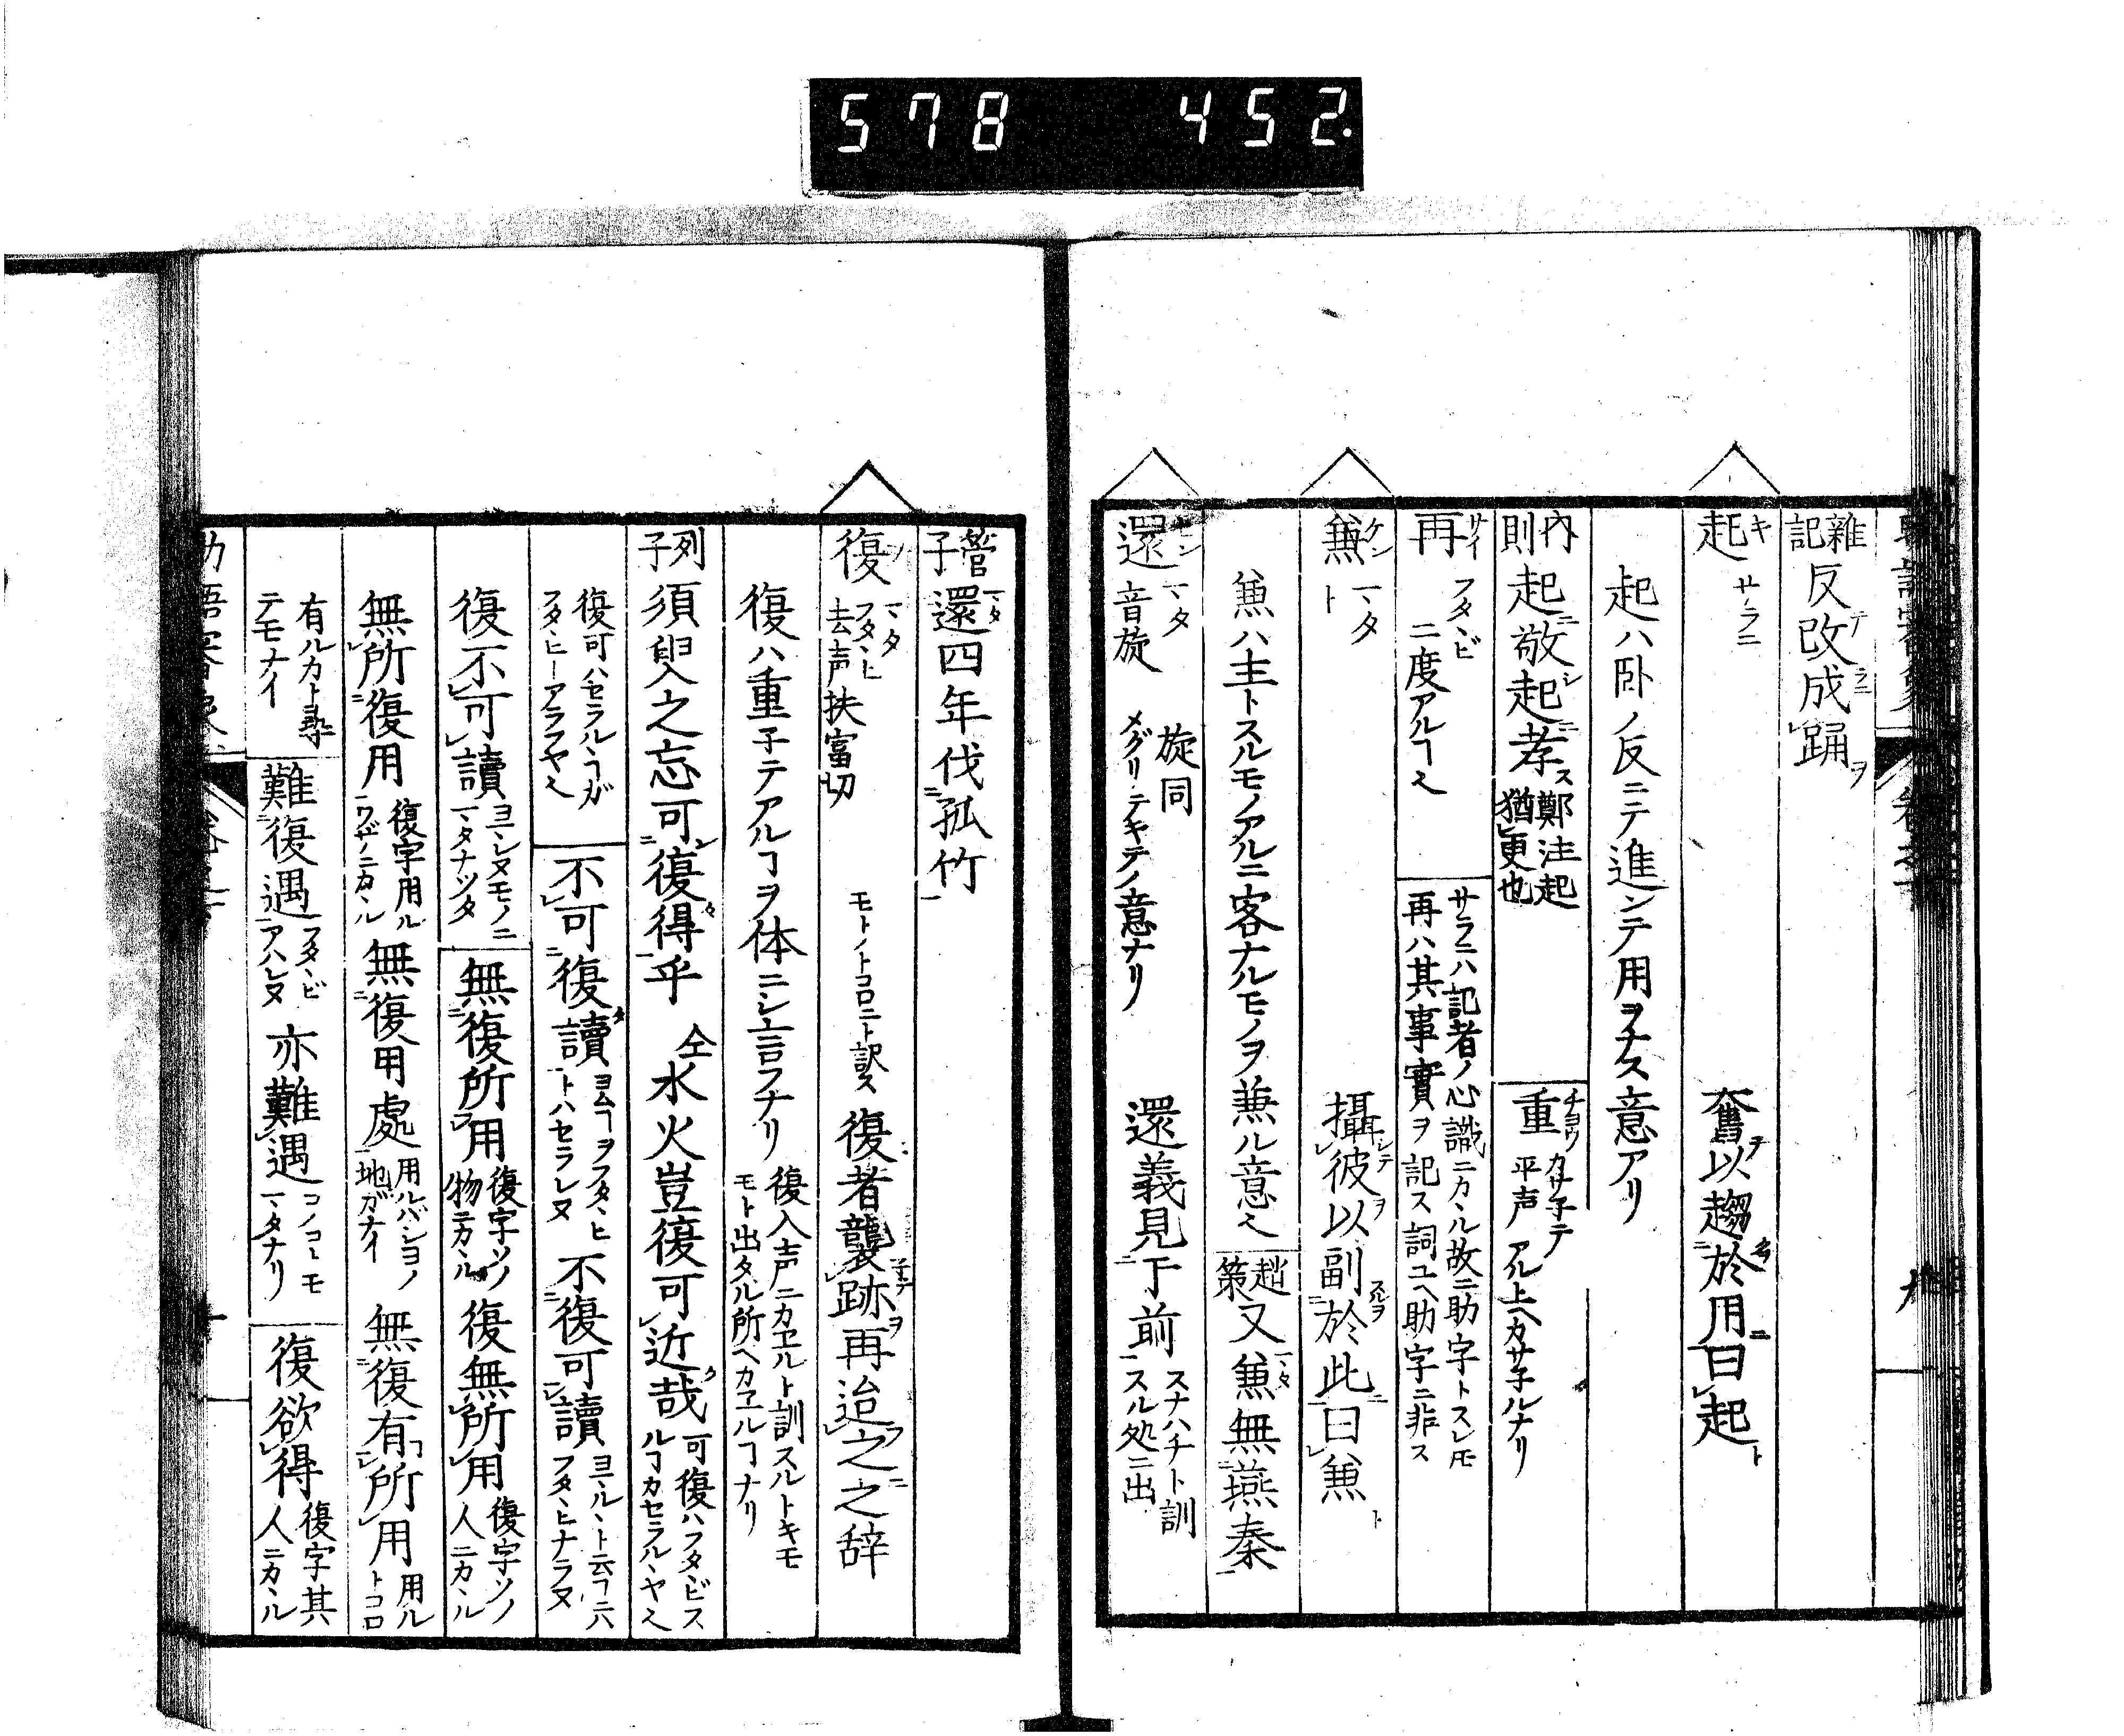 578 452.
雜記 反改成踊
起 キ サラニ 奮以趨於用曰起
起ハ卧ノ反ニテ進ンテ用ヲナス意アリ
內則 起敬起孝ス 鄭注起猶更也 重 チヨウ カサ子テ 平声 アル上ヘカサ子ルナリ
再 サイ フタヽビ 二度アルヿ也 サラニハ記者ノ心識ニカヽル故ニ助字トスレ𪜈再ハ其事實ヲ記ス詞ユヘ助字ニ非ス
兼 ケン マタ ト 攝彼以副於此曰兼
兼ハ主トスルモノアルニ客ナルモノヲ兼ル意也 趙策 又兼無燕秦
還 セン マタ 音旋 旋同 メグリテキテノ意ナリ 還義見下前 スナハチト訓スル処ニ出
管子 還四年伐孤竹
復 フ マタ フタヽヒ 去声扶富切 モトノトコロニト訳ス 復者襲跡再迨之之辞
復ハ重子テアルヿヲ体ニシ言フナリ 復入声ニカヱルト訓スルトキモモト出タル所ヘカヱルヿナリ
列子 須臾之忘可復得乎 仝 水火豈復可近哉 可復ハフタヽビスルヿカセラルヽヤ也
復可ハセラルヽヿガフタヽヒーアラフヤ也 不可復讀 ヨムヿヲフタヽヒトハセラレヌ 不復可讀 ヨマルヽト云ヿニ六フタヽヒナラヌ
復不可讀 ヨマレヌモノニマタナツタ 無復所用 復字ソノ物ニカヽル 復無所用 復字ソノ人ニカヽル
無所復用 復字用ルワザニカヽル 無復用處 用ルバシヨノ地ガナイ 無復有所用 用ルトコロ
有ルカト尋テモナイ 難復遇 フタヽビアハレヌ 亦難遇 コノコヽモマタナリ 復欲得 復字其人ニカヽル